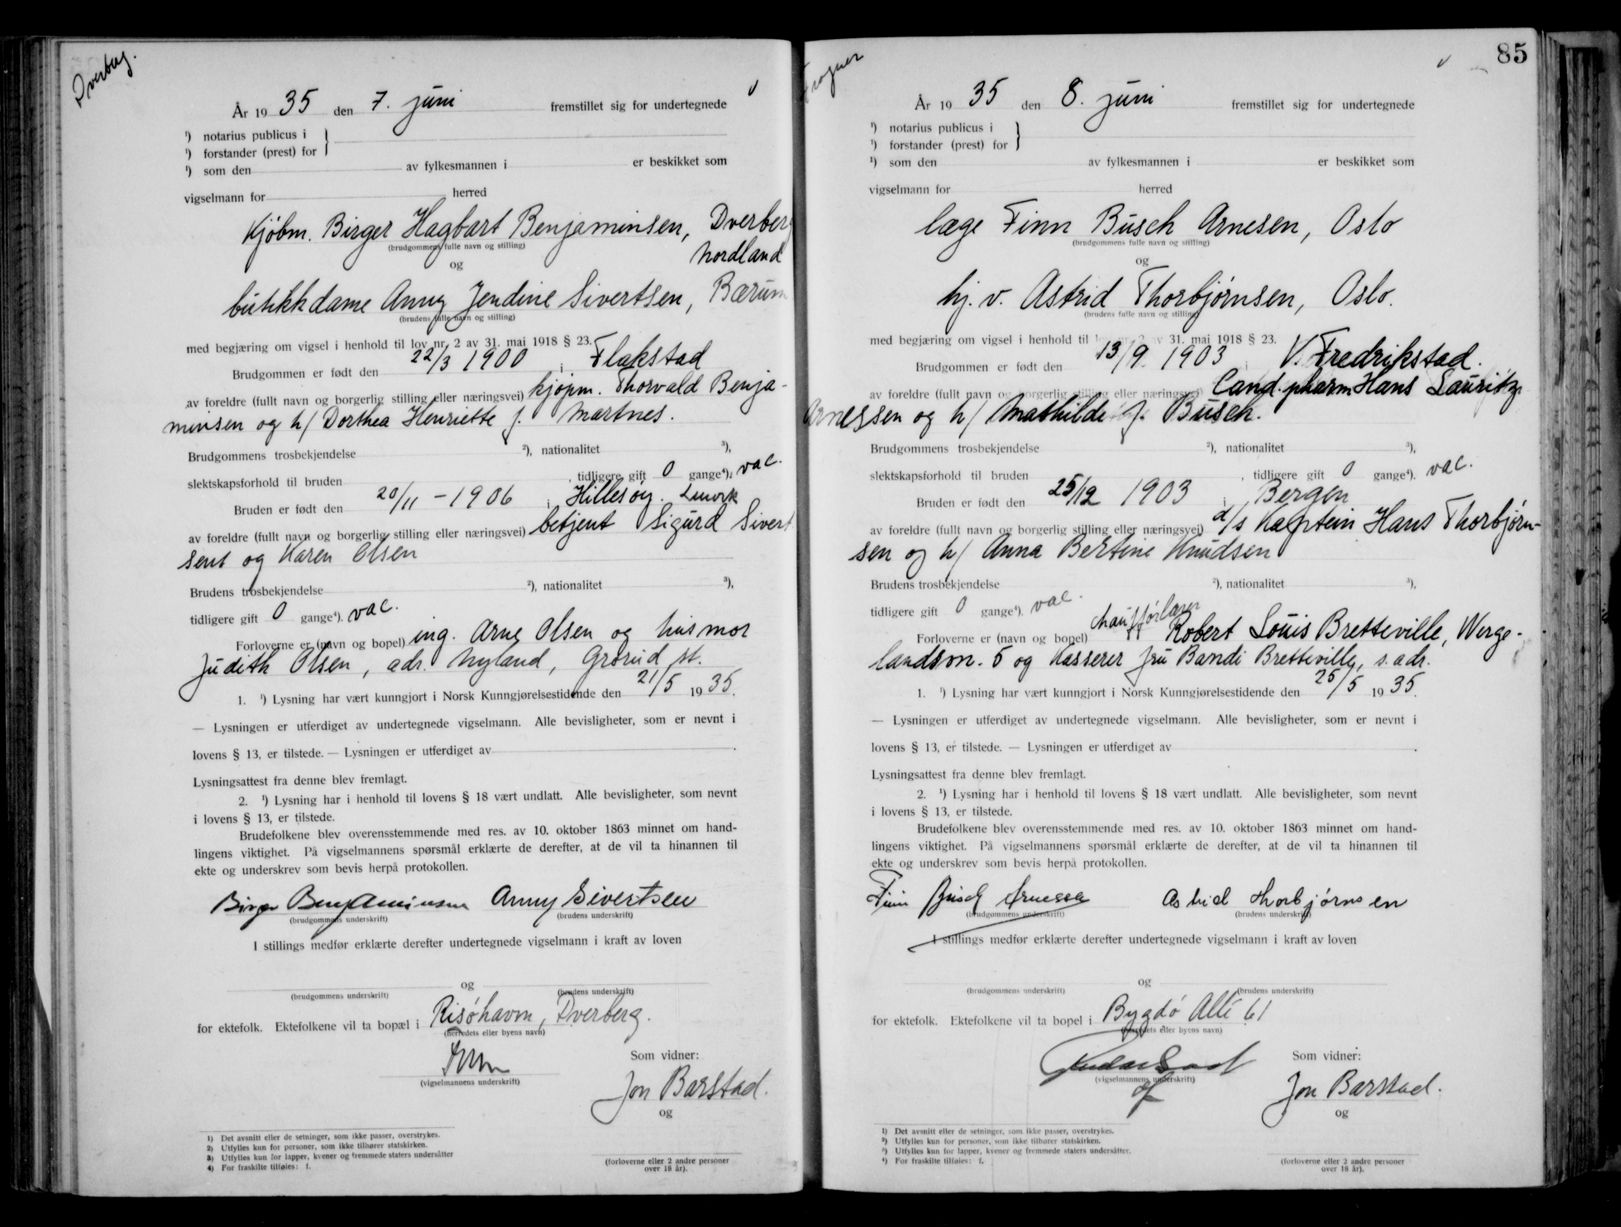 Dverberg.
År 19 35 den 7. juni fremstillet sig for undertegnede
¹) notarius publicus i
¹) forstander (prest) for
¹) som den av fylkesmannen i er beskikket som
vigselmann for herred
Kjøbm. Birger Hagbart Benjaminsen, Dverberg
(brudgommens fulle navn og stilling)
Nordland
og
butikkdame Anny Jendine Sivertsen, Bærum
(brudens fulle navn og stilling)
med begjæring om vigsel i henhold til lov nr. 2 av 31. mai 1918 § 23.
Brudgommen er født den 22/3 1900 i Flakstad
av foreldre (fullt navn og borgerlig stilling eller næringsvei) kjøpm. Thorvald Benja-
minsen og h/ Dorthea Henriette f. Martnes.
Brudgommens trosbekjendelse ²), nationalitet ³),
slektskapsforhold til bruden , tidligere gift 0 gange⁴). vac.
Bruden er født den 20/11 - 1906 i Hillesøy. Lenvik
av foreldre (fullt navn og borgerlig stilling eller næringsvei) betjent Sigurd Sivert
sent og Karen Olsen
Brudens trosbekjendelse ²), nationalitet ³),
tidligere gift 0 gange⁴). vac.
Forloverne er (navn og bopel) ing. Arne Olsen og husmor
Judith Olsen, adr. Nyland, Grorud st.
1. ¹) Lysning har vært kunngjort i Norsk Kunngjørelsestidende den 21/5 19 35.
— Lysningen er utferdiget av undertegnede vigselmann. Alle bevisligheter, som er nevnt i
lovens § 13, er tilstede. — Lysningen er utferdiget av .
Lysningsattest fra denne blev fremlagt.
2. ¹) Lysning har i henhold til lovens § 18 vært undlatt. Alle bevisligheter, som nevnt
i lovens § 13, er tilstede.
Brudefolkene blev overensstemmende med res. av 10. oktober 1863 minnet om hand-
lingens viktighet. På vigselmannens spørsmål erklærte de derefter, at de vil ta hinannen til
ekte og underskrev som bevis herpå protokollen.
Birger Benjaminsen Anny Sivertsen
(brudgommens underskrift) (brudens underskrift)
I stillings medfør erklærte derefter undertegnede vigselmann i kraft av loven
og
(brudgommens underskrift) (brudens underskrift)
for ektefolk. Ektefolkene vil ta bopæl i Risøhavn, Dverberg.
(herredets eller byens navn)
Som vidner:
(vigselmannens underskrift)
Jon Barstad.
og
1) Det avsnitt eller de setninger, som ikke passer, overstrykes.
2) Utfylles kun for personer, som ikke tilhører statskirken.
3) Utfylles kun for lapper, kvener og fremmede staters undersåtter
4) For fraskilte tilføies: f.
(forloverne eller 2 andre personer
over 18 år).
85
Frogner
År 19 35 den 8. juni fremstillet sig for undertegnede
¹) notarius publicus i
¹) forstander (prest) for
¹) som den av fylkesmannen i er beskikket som
vigselmann for herred
læge Finn Busch Arnesen, Oslo
(brudgommens fulle navn og stilling)
og
hj. v. Astrid Thorbjørnsen, Oslo.
(brudens fulle navn og stilling)
med begjæring om vigsel i henhold til 31. mai 1918 § 23.
Brudgommen er født den 13/9. 1903 i V. Fredrikstad.
av foreldre (fullt navn og borgerlig stilling eller næringsvei) Cand. pharm Hans Lauritz
Arnessen og h/ Mathilde f. Busch.
Brudgommens trosbekjendelse ²), nationalitet ³),
slektskapsforhold til bruden , tidligere gift 0 gange⁴). vac.
Bruden er født den 25/12 1903 i Bergen
av foreldre (fullt navn og borgerlig stilling eller næringsvei) d/s Kaptein Hans Thorbjørn-
sen og h/ Anna Bertine Knudsen
Brudens trosbekjendelse ²), nationalitet ³),
tidligere gift 0 gange⁴). vac.
Forloverne er (navn og bopel) chaufførlærer Robert Louis Bretteville, Werge-
landsvn. 5 og Kasserer fru Bandi Bretteville, s. adr.
1. ¹) Lysning har vært kunngjort i Norsk Kunngjørelsestidende den 25/5 19 35.
— Lysningen er utferdiget av undertegnede vigselmann. Alle bevisligheter, som er nevnt i
lovens § 13, er tilstede. — Lysningen er utferdiget av .
Lysningsattest fra denne blev fremlagt.
2. ¹) Lysning har i henhold til lovens § 18 vært undlatt. Alle bevisligheter, som nevnt
i lovens § 13, er tilstede.
Brudefolkene blev overensstemmende med res. av 10. oktober 1863 minnet om hand-
lingens viktighet. På vigselmannens spørsmål erklærte de derefter, at de vil ta hinannen til
ekte og underskrev som bevis herpå protokollen.
Finn Busch Arnesen Astrid Thorbjørnsen
(brudgommens underskrift) (brudens underskrift)
I stillings medfør erklærte derefter undertegnede vigselmann i kraft av loven
og
(brudgommens underskrift) (brudens underskrift)
for ektefolk. Ektefolkene vil ta bopel i Bygdø Allé 61
(herredets eller byens navn)
Som vidner:
(vigselmannens underskrift)
Jon Barstad.
og
¹) Det avsnitt eller de setninger, som ikke passer, overstrykes.
²) Utfylles kun for personer, som ikke tilhører statskirken.
³) Utfylles kun for lapper, kvener og fremmede staters undersåtter.
⁴) For fraskilte tilføies: f.
(forloverne eller 2 andre personer
over 18 år).